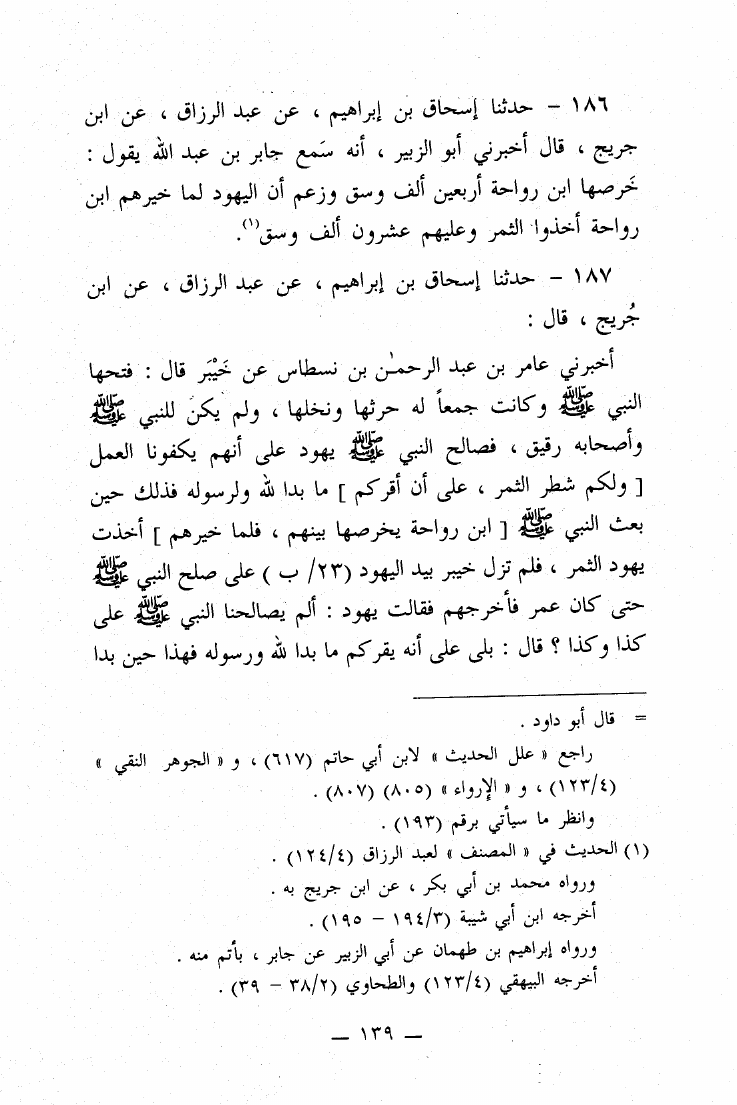 ١٨٦ – حدثنا إسحاق بن إبراهيم ، عن عبد الرزاق ، عن ابن
جريج ، قال أخبرني أبو الزبير ، أنه سَمع جابر بن عبد الله يقول :
خَرصها ابن رواحة أربعين ألف وسق وزعم أن اليهود لما خيرهم ابن
رواحة أخذوا الثمر وعليهم عشرون ألف وسق(١).
١٨٧ – حدثنا إسحاق بن إبراهيم ، عن عبد الرزاق ، عن ابن
جُريج ، قال :
أخبرني عامر بن عبد الرحمـٰن بن نسطاس عن خَيْبَر قال : فتحها
النبي ﷺ وكانت جمعاً له حرثها ونخلها ، ولم يكن للنبي ﷺ
وأصحابه رقيق ، فصالح النبي ﷺ يهود على أنهم يكفونا العمل
[ ولكم شطر الثمر ، على أن أقركم ] ما بدا لله ولرسوله فذلك حين
بعث النبي ﷺ [ ابن رواحة يخرصها بينهم ، فلما خيرهم ] أخذت
يهود الثمر ، فلم تزل خيبر بيد اليهود (٢٣/ ب ) على صلح النبي ﷺ
حتى كان عمر فأخرجهم فقالت يهود : ألم يصالحنا النبي ﷺ على
كذا وكذا ؟ قال : بلى على أنه يقركم ما بدا لله ورسوله فهذا حين بدا
= قال أبو داود .
راجع « علل الحديث » لابن أبي حاتم (٦١٧) ، و « الجوهر النقي »
(١٢٣/٤) ، و « الإرواء » (٨٠٥) (٨٠٧) .
وانظر ما سيأتي برقم (١٩٣) .
(١) الحديث في « المصنف » لعبد الرزاق (١٢٤/٤) .
ورواه محمد بن أبي بكر ، عن ابن جريج به .
أخرجه ابن أبي شيبة (١٩٤/٣ – ١٩٥) .
ورواه إبراهيم بن طهمان عن أبي الزبير عن جابر ، بأتم منه .
أخرجه البيهقي (١٢٣/٤) والطحاوي (٣٨/٢ – ٣٩) .
— ١٣٩ —